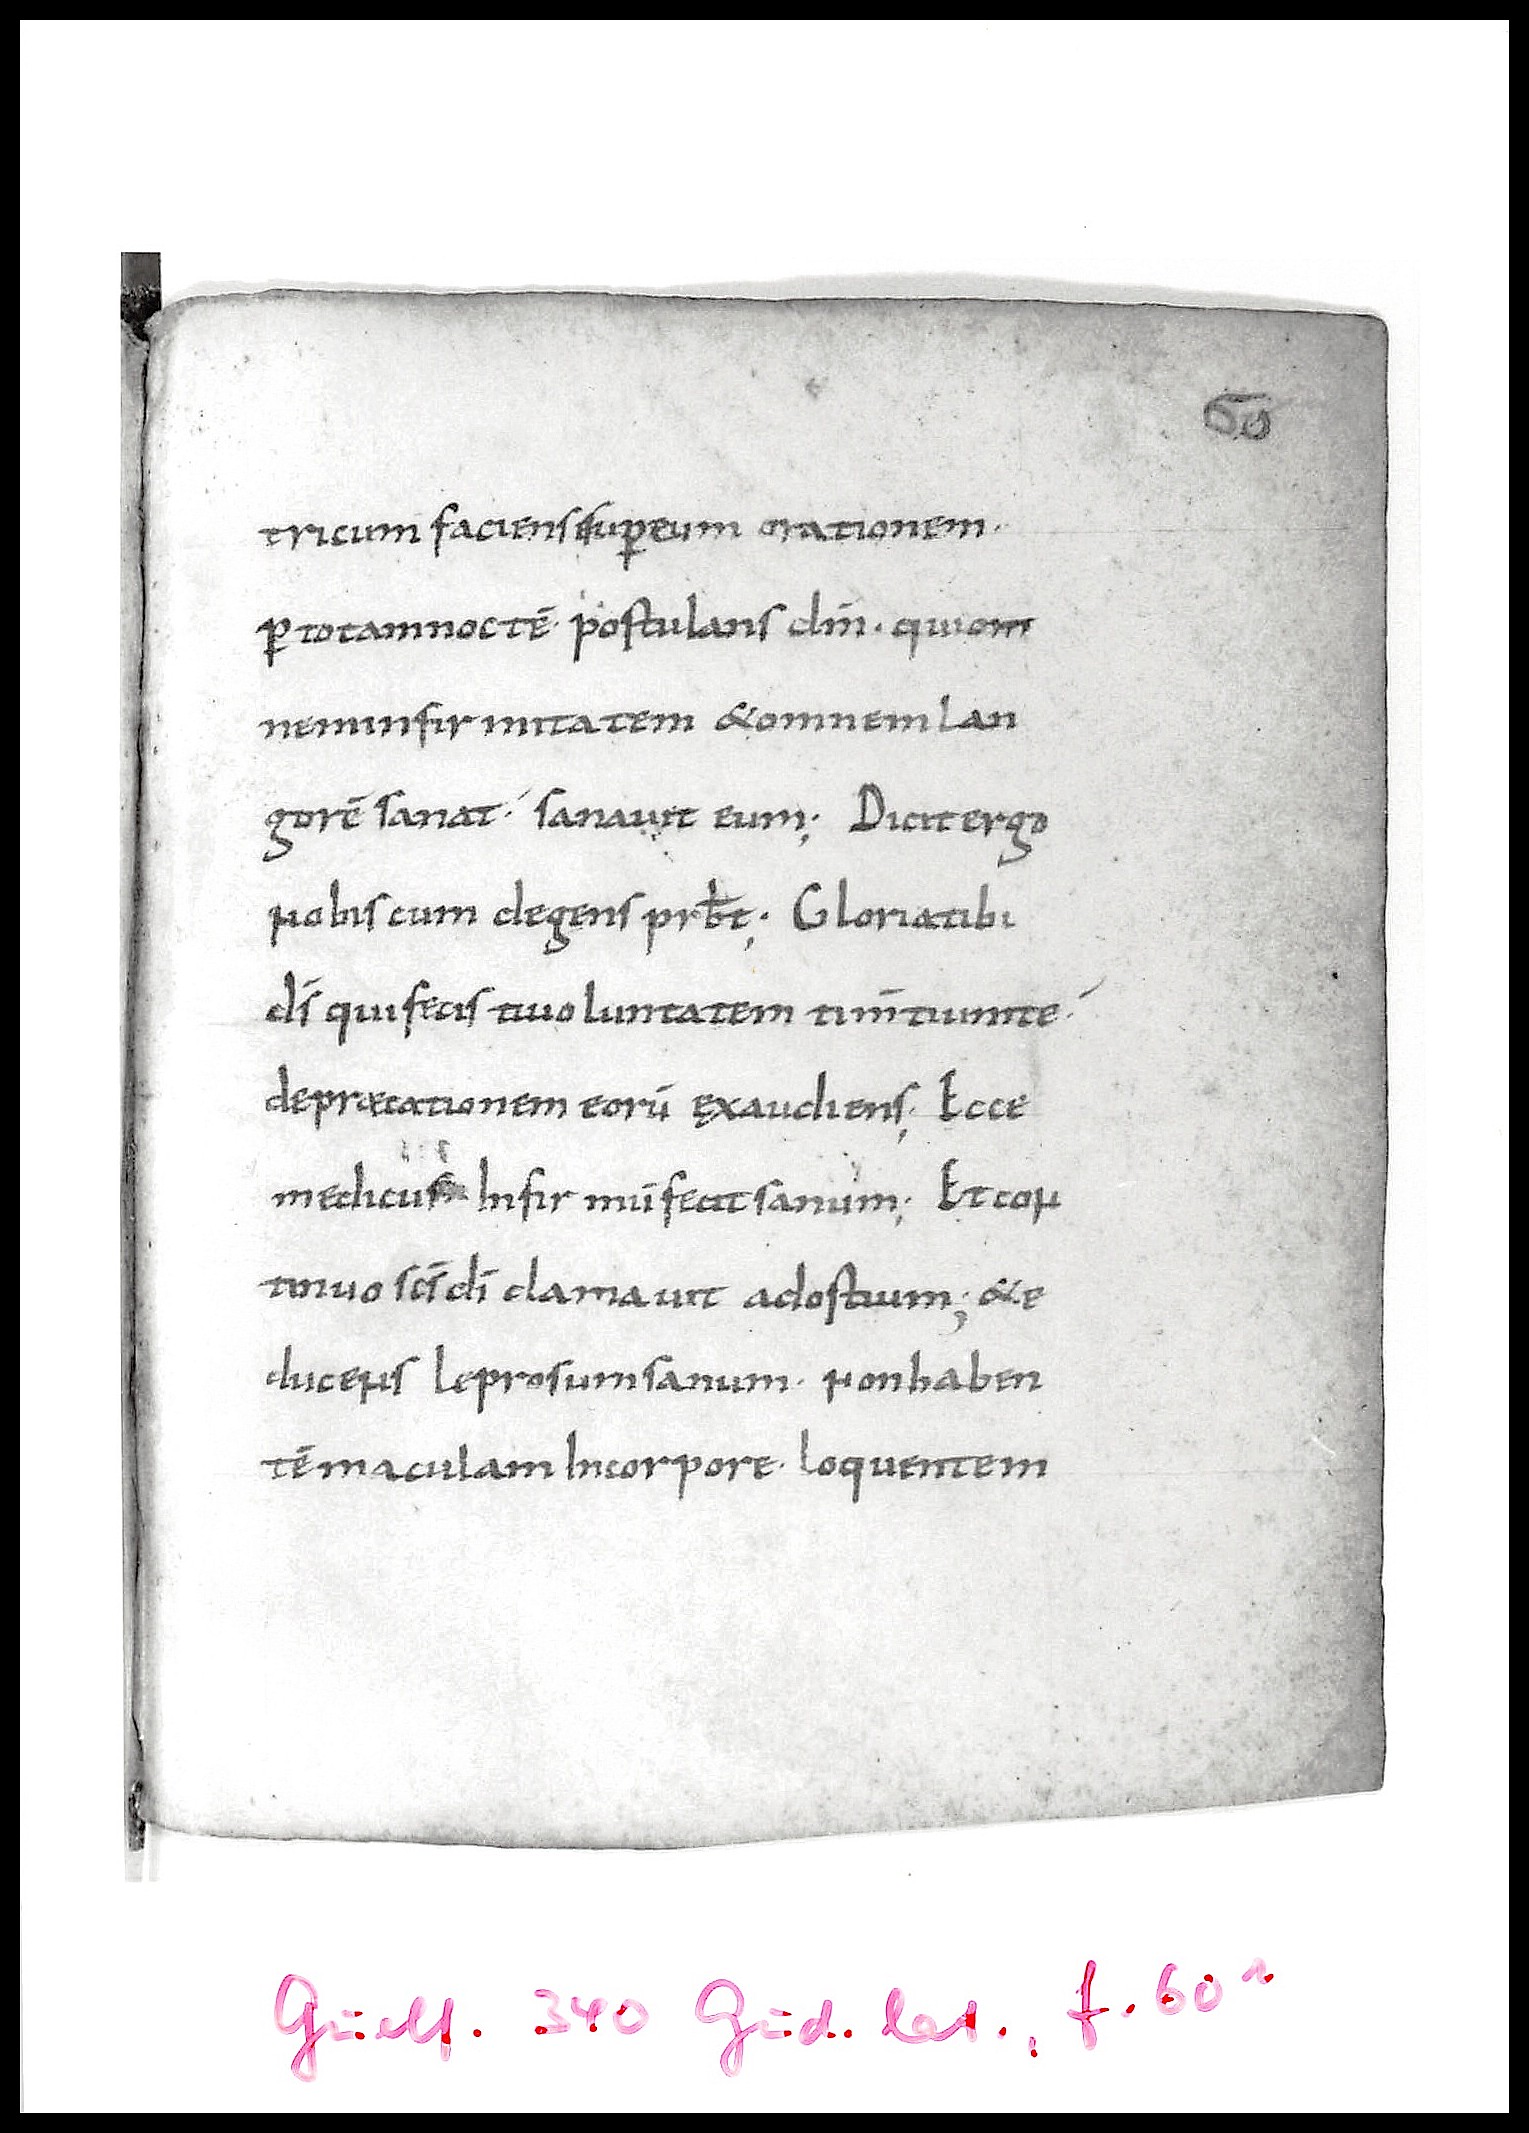 60
tricum faciens super eum orationem·
ꝑ totam noctē· postulans dm̄· qui om
nem infirmitatem & omnem lan
gorē sanat·́ sanauit eum; Dicit ergo
nobiscum degens prb̄t; Gloria tibi
dī qui fecis tuuoluntatem tim̄tium te·́
depræcationem eorū ęxaudiens; Ecce
medicus Infirmū fecit sanum; Et con
tinuo sc̄s dī clamauit ad ostium; & e
ducens leprosum sanum· non haben
tē maculam In corpore· loquentem
Guelf. 340 Gud. lat., f. 60r